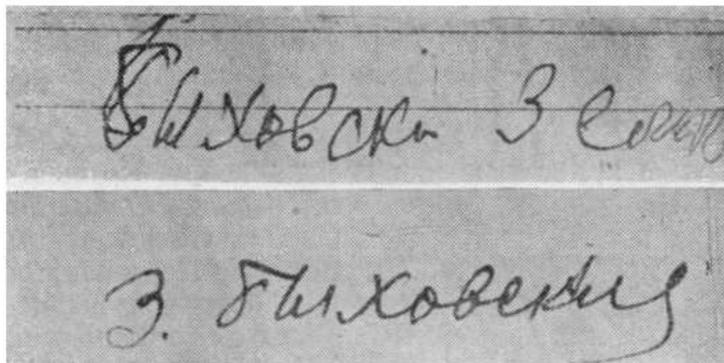 Быховски З
З. Быховский